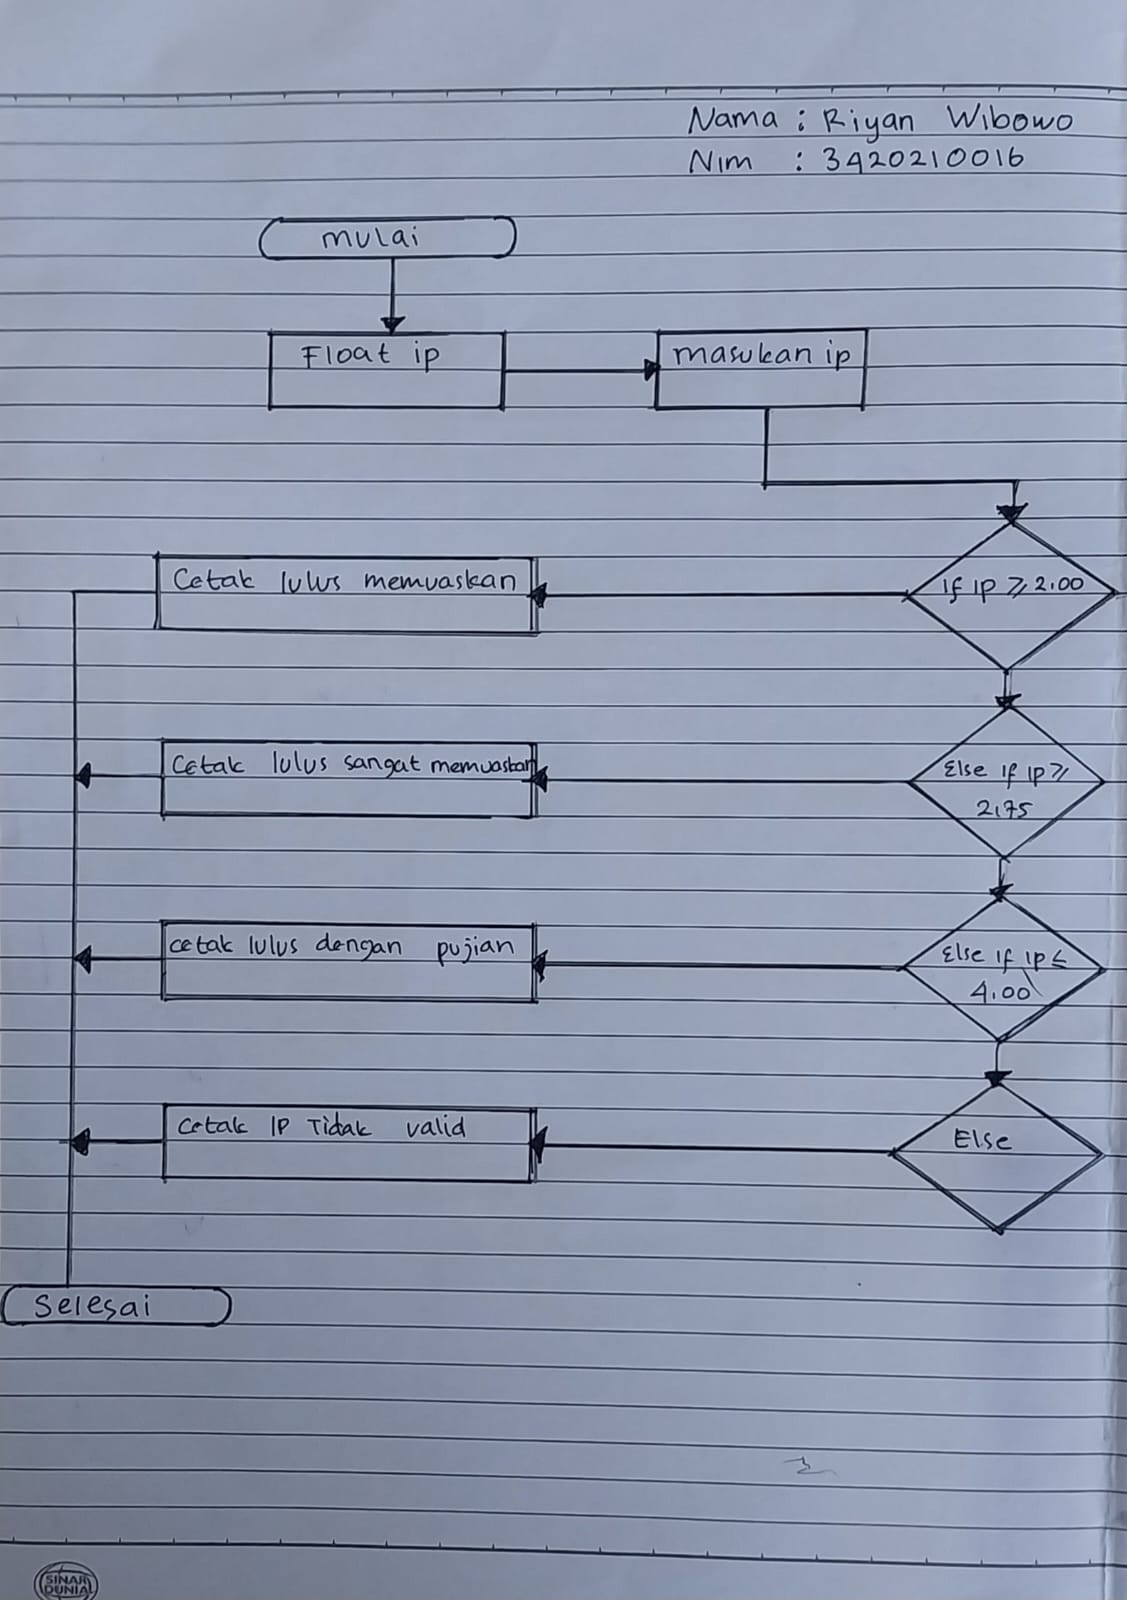 Nama : Riyan Wibowo
Nim : 3420210016
mulai
Float ip
masukan ip
Cetak lulus memuaskan
If ip ≥ 2.00
Cetak lulus sangat memuaskan
Else if ip ≥
2,75
cetak lulus dengan pujian
Else if ip ≤
4.00
Cetak IP Tidak valid
Else
Selesai
SINAR
DUNIA